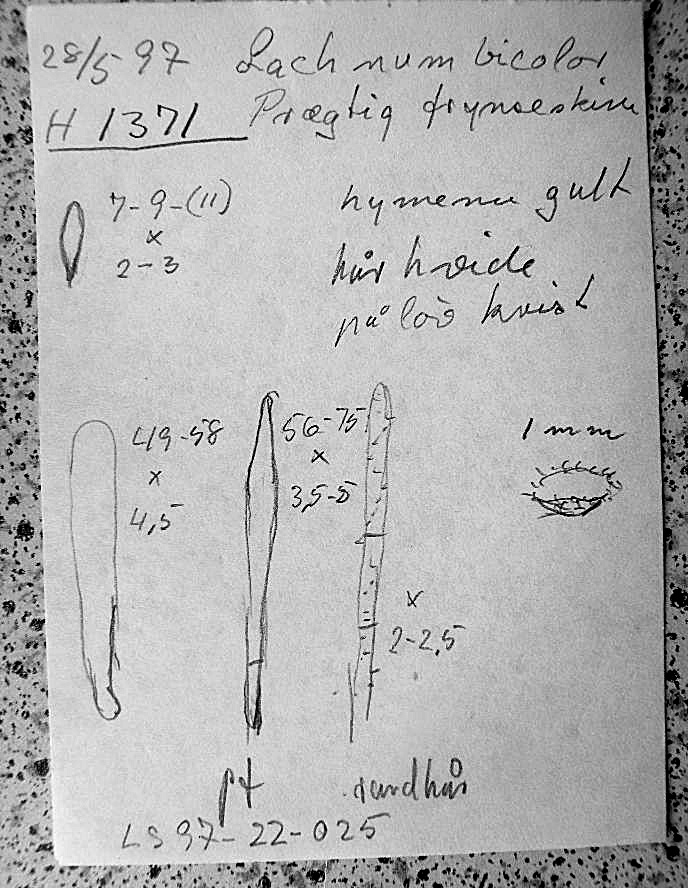 28/5-97 Lachnum bicolor
H 1371 Prægtig frynseskive
7-9-(11)
x
2-3
hymenie gult
hår hvide
på løv kvist
49-58
x
4,5
56-75
x
3,5-5
1 mm
x
2-2,5
pf randhår
LS 97-22-025